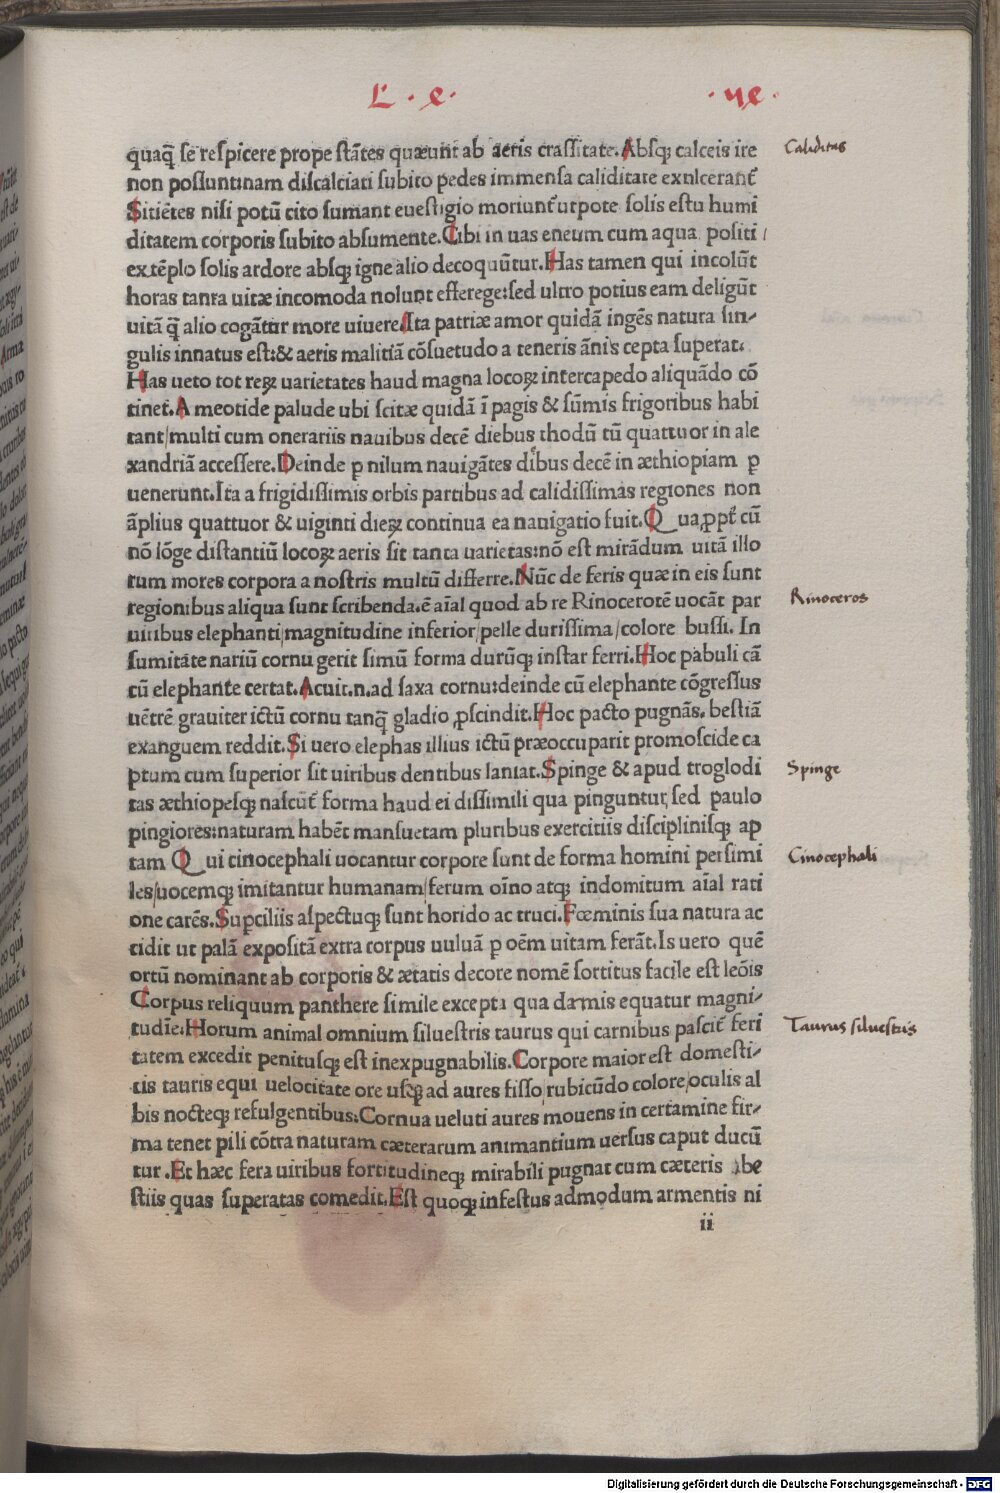 L · e · · ye ·
quaq̃ se respicere prope stãtes quæunt ab aeris crassitate. Absqꝫ calceis ire
Caliditas
non possuntinam discalciati subito pedes immensa caliditate exulcerant̃
Sitiẽtes nisi potũ cito sumant euestigio moriunt̃ utpote solis estu humi
ditatem corporis subito absumente. Cibi in uas eneum cum aqua positi /
extẽplo solis ardore absqꝫ igne alio decoquũtur. Has tamen qui incolũt
horas tanta uitæ incomoda nolunt effereге:sed ultro potius eam deligũt
uitã q̃ alio cogãtur more uiuere. Ita patriæ amor quidã ingẽs natura sin⸗
gulis innatus est:& aeris malitiã cõsuetudo a teneris ãnis cepta superat.
Has ueto tot reꝝ uarietates haud magna locoꝝ intercapedo aliquãdo cõ
tinet. A meotide palude ubi scitæ quidã ĩ pagis & sũmis frigoribus habi
tant/multi cum onerariis nauibus decẽ diebus rhodũ tũ quattuor in ale
xandriã accessere. Deinde ꝑ nilum nauigãtes dibus decẽ in æthiopiam ꝑ
uenerunt. Ita a frigidissimis orbis partibus ad calidissimas regiones non
ãplius quattuor & uiginti dieꝝ continua ea nauigatio fuit. Qua ꝓpt̃ cũ
nõ lõge distantiũ locoꝝ aeris sit tanta uarietas:nõ est mirãdum uitã illo
rum mores corpora a nostris multũ differre. Nũc de feris quæ in eis sunt
regionibus aliqua sunt scribenda. ẽ aĩal quod ab re Rinocerotẽ uocãt par
Rinoceros
uiribus elephanti/magnitudine inferior/pelle durissima/colore bussi. In
sumitate nariũ cornu gerit simũ forma durũqꝫ instar ferri. Hoc pabuli cã
cũ elephante certat. Acuit.n.ad saxa cornu:deinde cũ elephante cõgressus
uẽtrẽ grauiter ictũ cornu tanq̃ gladio ꝓscindit. Hoc pacto pugnãs. bestiã
exanguem reddit. Si uero elephas illius ictũ præoccuparit promoscide ca
ptum cum superior sit uiribus dentibus laniat. Spinge & apud troglodi
Spinge
tas æthiopesqꝫ nascũt̃ forma haud ei dissimili qua pinguntur, sed paulo
pingiores:naturam habẽt mansuetam pluribus exercitiis disciplinisqꝫ ap
tam Qui cinocephali uocantur corpore sunt de forma homini persimi
Cinocephali
les/uocemqꝫ imitantur humanam/ferum oĩno atqꝫ indomitum aĩal rati
one carẽs. Supciliis aspectuqꝫ sunt horido ac truci. Fœminis sua natura ac
cidit ut palã expositã extra corpus uuluã ꝑ oẽm uitam ferãt. Is uero quẽ
ortũ nominant ab corporis & ætatis decore nomẽ sortitus facile est leõis
Corpus reliquum panthere simile excepta qua damis equatur magni⸗
tudĩe. Horum animal omnium siluestris taurus qui carnibus pascit̃ feri
Taurus siluestris
tatem excedit penitusqꝫ est inexpugnabilis. Corpore maior est domesti⸗
cis tauris equi uelocitate ore usqꝫ ad aures fisso/rubicũdo colore/oculis al
bis nocteqꝫ refulgentibus:Cornua ueluti aures mouens in certamine fir⸗
ma tenet pili cõtra naturam cæterarum animantium uersus caput ducũ
tur. Et hæc fera uiribus fortitudineqꝫ mirabili pugnat cum cæteris be
stiis quas superatas comedit. Est quoqꝫ infestus admodum armentis ni
ii
Digitalisierung gefördert durch die Deutsche Forschungsgemeinschaft - DFG